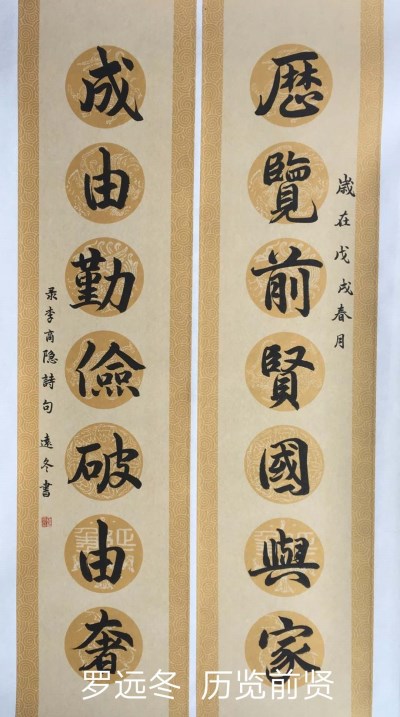 歷覽前賢國與家
歲在戊戌春月
成由勤儉破由奢
录李商隐詩句 遠冬書
罗远冬 历览前贤